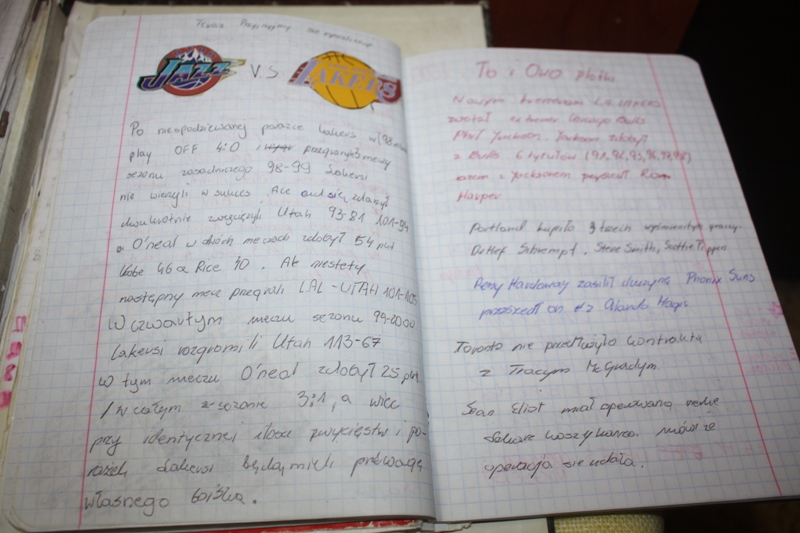 Teraz
JAZZ V.S LAKERS
Po niespodziewanej porażce Lakers w 98
play OFF 4:0 i przegranych 3 meczy
sezonu zasadniczego 98-99 Lakersi
nie wierzyli w sukces. Ale cud się zdarzył
dwukrotnie zwyciężyli Utah 93-81 101-94
O'neal w dwóch meczach zdobył 54 pkt
Kobe 46 a Rice 40. Ale niestety
następny mecz przegrali LAL-UTAH 101-105
W czwartym meczu sezonu 99-2000
Lakersi rozgromili Utah 113-67
w tym meczu O'neal zdobył 25 pkt
W całym sezonie 3:1, a więc
przy identycznej ilości zwycięstw i po-
rażek Lakersi będą mieli przewagę
własnego boiska.
To i Owo Plotki
Nowym trenerem L.A. LAKERS
został ex trener Chicago Bulls
Phil Jackson. Jackson zdobył
z Bulls 6 tytułów (91,92,93,96,97,98)
razem z Jacksonem przyszedł Ron
Harper
Portland kupiło trzech wyśmienitych graczy
Detlef Schrempf, Steve Smith, Scottie Pippen
Peny Hardaway zasilił drużynę Phonix Suns
przeszedł on z Orlando Magic
Toronto nie przedłużyło kontraktu
z Tracym McGradym
Sean Eliot miał operowaną nerkę
koszykarza. mówi że
operacja się udała.